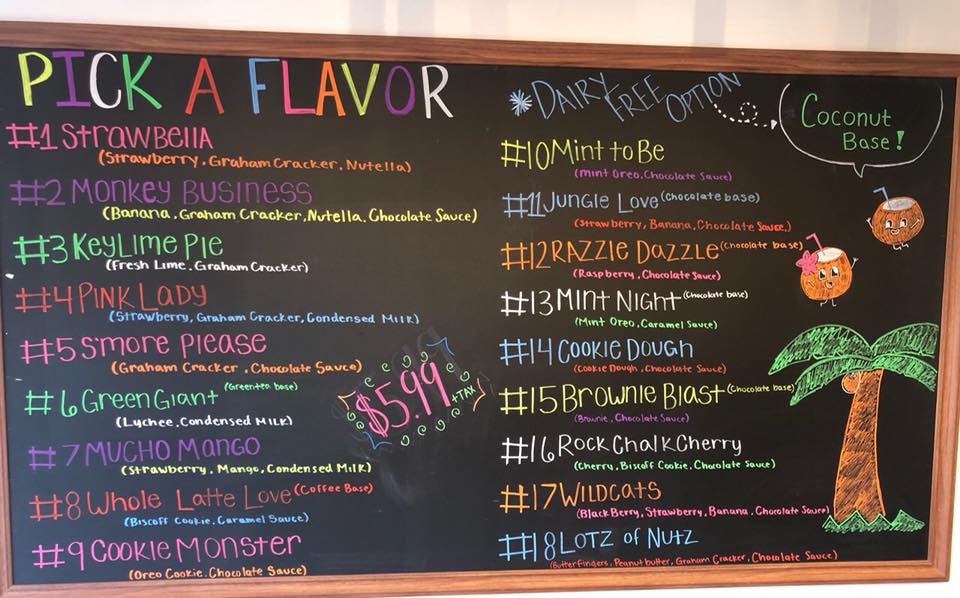 PICK A FLAVOR
#1 Strawbella
(Strawberry, Graham Cracker, Nutella)
#2 Monkey Business
(Banana, Graham Cracker, Nutella, Chocolate Sauce)
#3 Key Lime Pie
(Fresh Lime, Graham Cracker)
#4 Pink Lady
(Strawberry, Graham Cracker, Condensed Milk)
#5 S'more Please
(Graham Cracker, Chocolate Sauce)
#6 Green Giant (Greentea base)
(Lychee, Condensed Milk)
#7 Mucho Mango
(Strawberry, Mango, Condensed Milk)
#8 Whole Latte Love (Coffee Base)
(Biscoff Cookie, Caramel Sauce)
#9 Cookie Monster
(Oreo Cookie, Chocolate Sauce)
$5.99 +TAX
*DAIRY FREE OPTION
Coconut
Base!
#10 Mint to Be
(Mint Oreo, Chocolate Sauce)
#11 Jungle Love (Chocolate base)
(Strawberry, Banana, Chocolate Sauce,)
#12 RAZZLE DAZZLE (Chocolate base)
(Raspberry, Chocolate Sauce)
#13 Mint Night (Chocolate base)
(Mint Oreo, Caramel Sauce)
#14 Cookie Dough
(Cookie Dough, Chocolate Sauce)
#15 Brownie Blast (Chocolate base)
(Brownie, Chocolate Sauce)
#16 Rock Chalk Cherry
(Cherry, Biscoff Cookie, Chocolate Sauce)
#17 Wildcats
(BlackBerry, Strawberry, Banana, Chocolate Sauce)
#18 Lotz of Nutz
(Butterfingers, Peanutbutter, Graham Cracker, Chocolate Sauce)